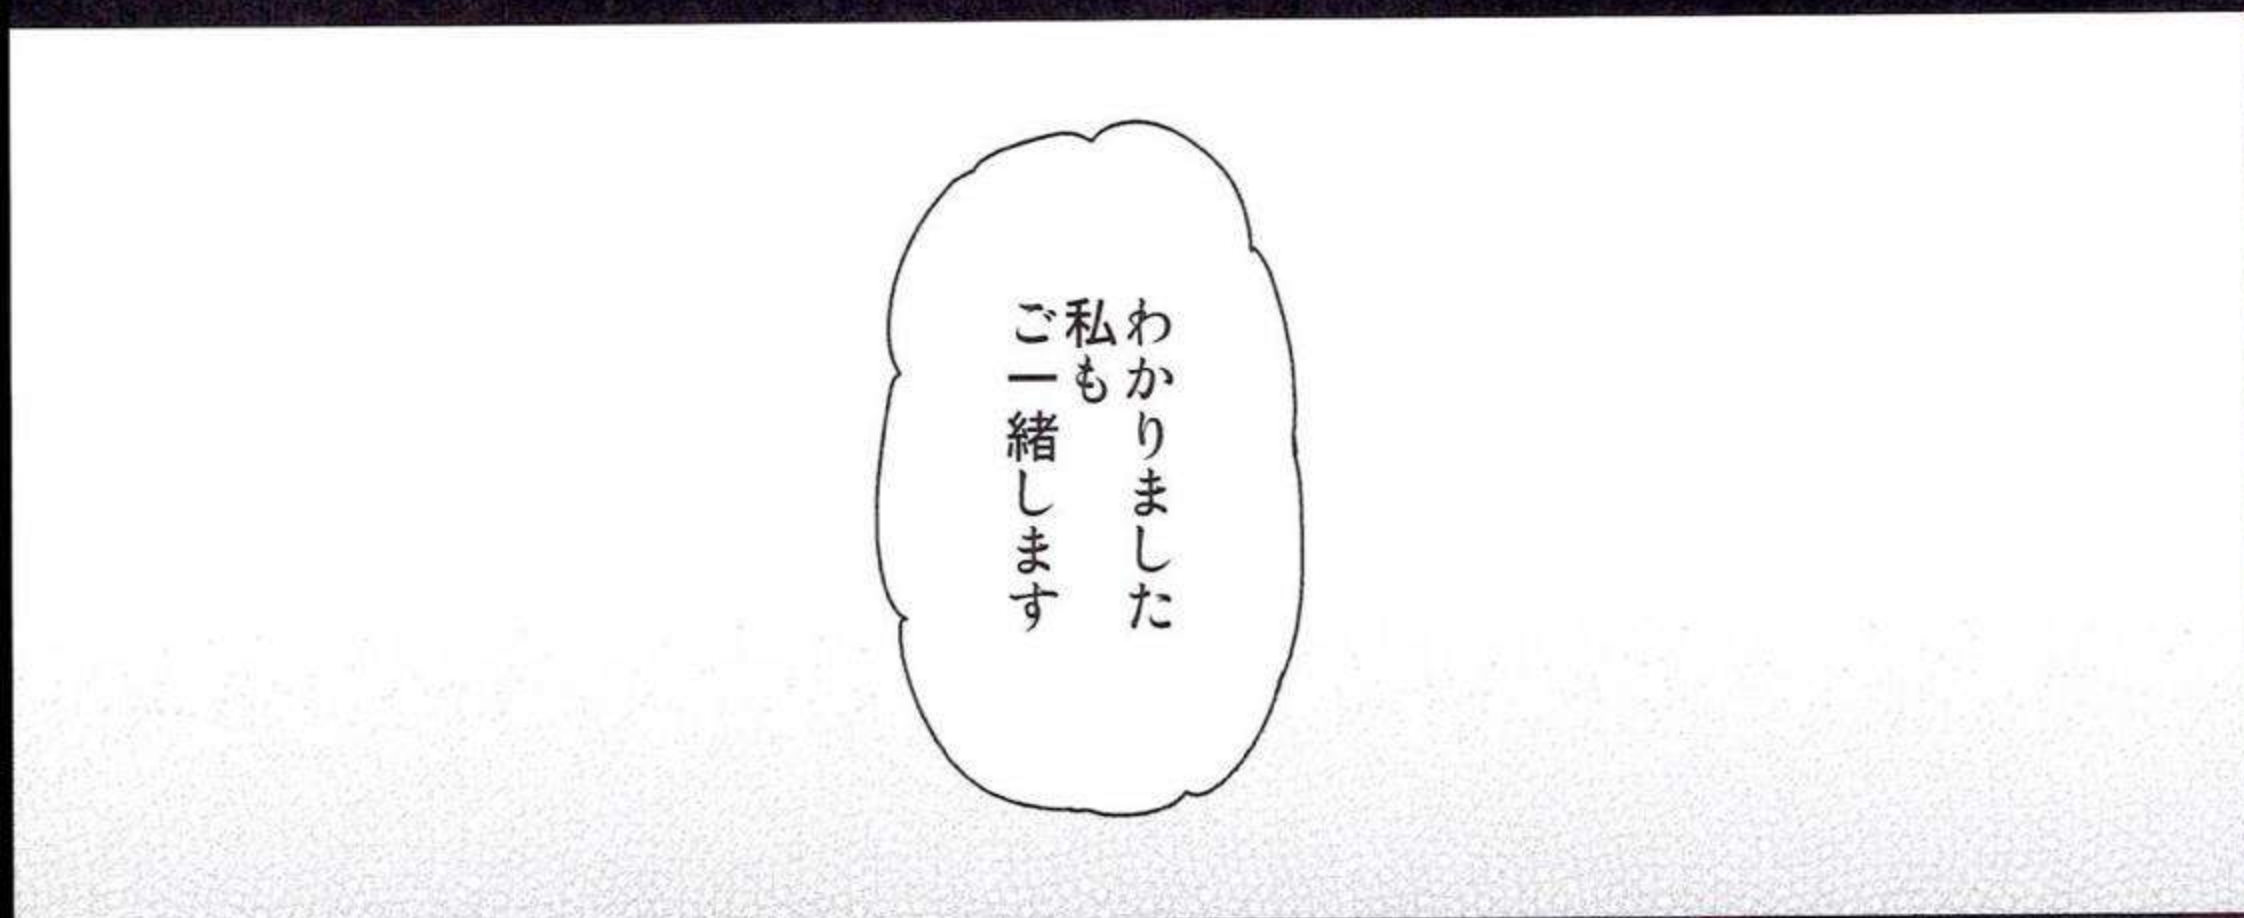 わかりました
私も
ご一緒します